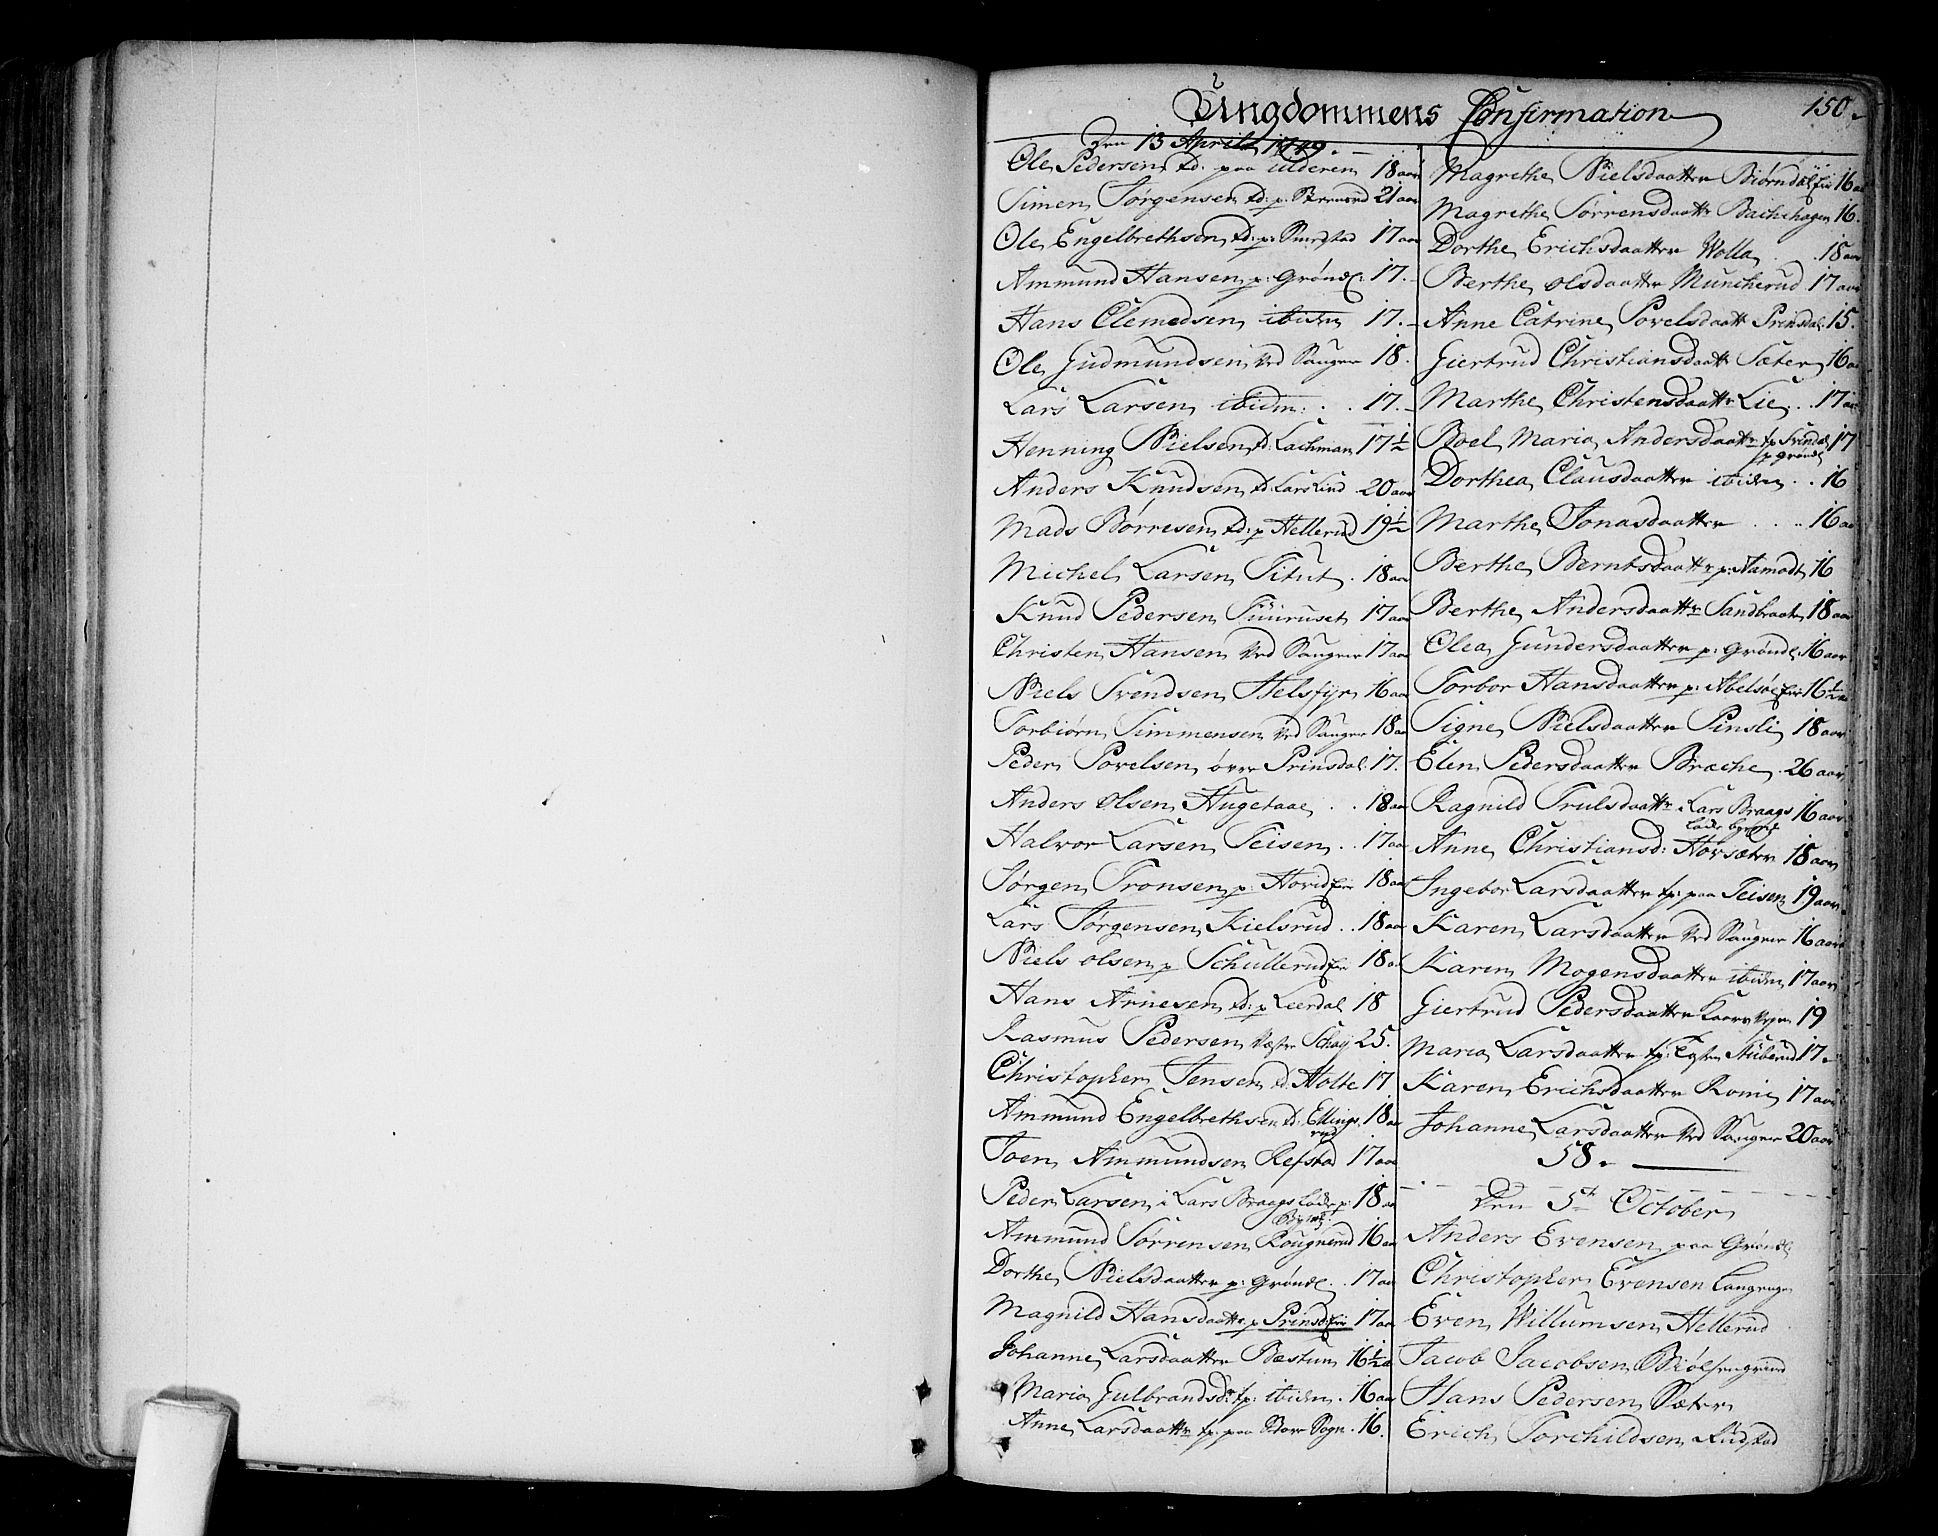 Ungdommens Confirmation
150.
Den 13 April 1749.
Ole Pedersen td. paa ulderen 18 aar
Simen Jørgensen td: p. 21 aar
Ole Engelbrethsen td: p: Smedstad 17 aar
Ammund Hansen p: Grønl: 17.
Hans Clemedsen ibidem 17.
Ole Gudmundsen ved Saugene 18.
Lars Larsen ibidm: . . 17.
Henning Nielsen td: Lachman 17 1/2
Anders Knudsen td: Lars Lind 20 aar
Mads Børresen td: p Hellerud 19 1/2
Michel Larsen Titut . 18 aar
Knud Pedersen Fuuruset 17 aar
Christen Hansen ved Saugene 17 aar
Niels Svendsen Helsfyr 16 aar
Torbiørn Simmensen ved Saugene 18 aar
Peder Povelsen øvre Prinsdal 17.
Anders Olsen Hugetaae . . 18 aar
Halvor Larsen Teisen . . 17 aar
Jørgen Tronsen p: Hovid eie 18 aar
Lars Jørgensen Kielsrud . . 18 aar
Niels Olsen p Schullerud eie 18 a
Hans Arnesen td: p Leerdal 18
Rasmus Pedersen Næstre Schøy 25.
Christopher Jensen td: Holte 17
Ammund Engelbrethsen td: Ellings 18 aar
rud
Joen Ammundsen Refstad 17 aar
Peder Larsen i Lars Braags Lade p: 18 aar
Bygning
Ammund Sørrensen Rougnerud 16 aar
Dorthe Nielsdaatter p: Grønl. . . 17 aar
Magnild Hansdaattr p Prinsd: eie 17 aar
Johanne Larsdaatter Bæstum 16 1/2 a
Maria Gulbrandsdr: tp: ibidem . 16 aar
Anne Larsdaatter tp: paa Sogn . 16.
Magrethe Nielsdaatter Biørndal eie 16 aar
Magrethe Sørrensdaattr Bachehagen 16.
Dorthe Erichsdaatter Wolla . . 18 aar
Berthe Olsdaatter Muncherud 17 aar
Anne Catrine Povelsdaattr Prinsdal 15.
Giertrud Christiansdaattr Sæter 16 aar
Marthe Christensdaattr Lie . . 17 aar
Boel Maria Andersdaattr tp Svindal 17
p Grønl
Dorthea Clausdaatter ibidem . . 16
Marthe Jonasdaatter . . . . 16 aar
Berthe Berntsdaattr p: Aamodt 16
Berthe Andersdaattr Sandbraaten 18 aar
Olea Gundersdaatter p: Grønl: 16 aar
Torbor Hansdaatter p: Abelsøe eie 16 1/2 aar
Signe Nielsdaatter Pinsli 18 aar
Elen Pedersdaatter Breche . 26 aar
Ragnild Trulsdaattr Lars Braags 16 aar
Lade bygning
Anne Christiansd: Hovsæter 18 aar
Ingebor Larsdaatter tp: paa Teisen 19 aar
Karen Larsdaatter ved Saugene 16 aar
Karen Mogensdaatter ibidem 17 aar
Giertrud Pedersdaatter 19
Maria Larsdaatter tp: Stubberud 17.
Karen Erichsdaatter Romi 17 aar
Johanne Larsdaatter ved Saugene 20 aar
58.
Den 5t October
Anders Evensen paa Grønl
Christopher Evensen
Even Willumsen Hellerud
Jacob Jacobsen Biølsengrind
Hans Pedersen Sæter
Erich Torchildsen Rustad